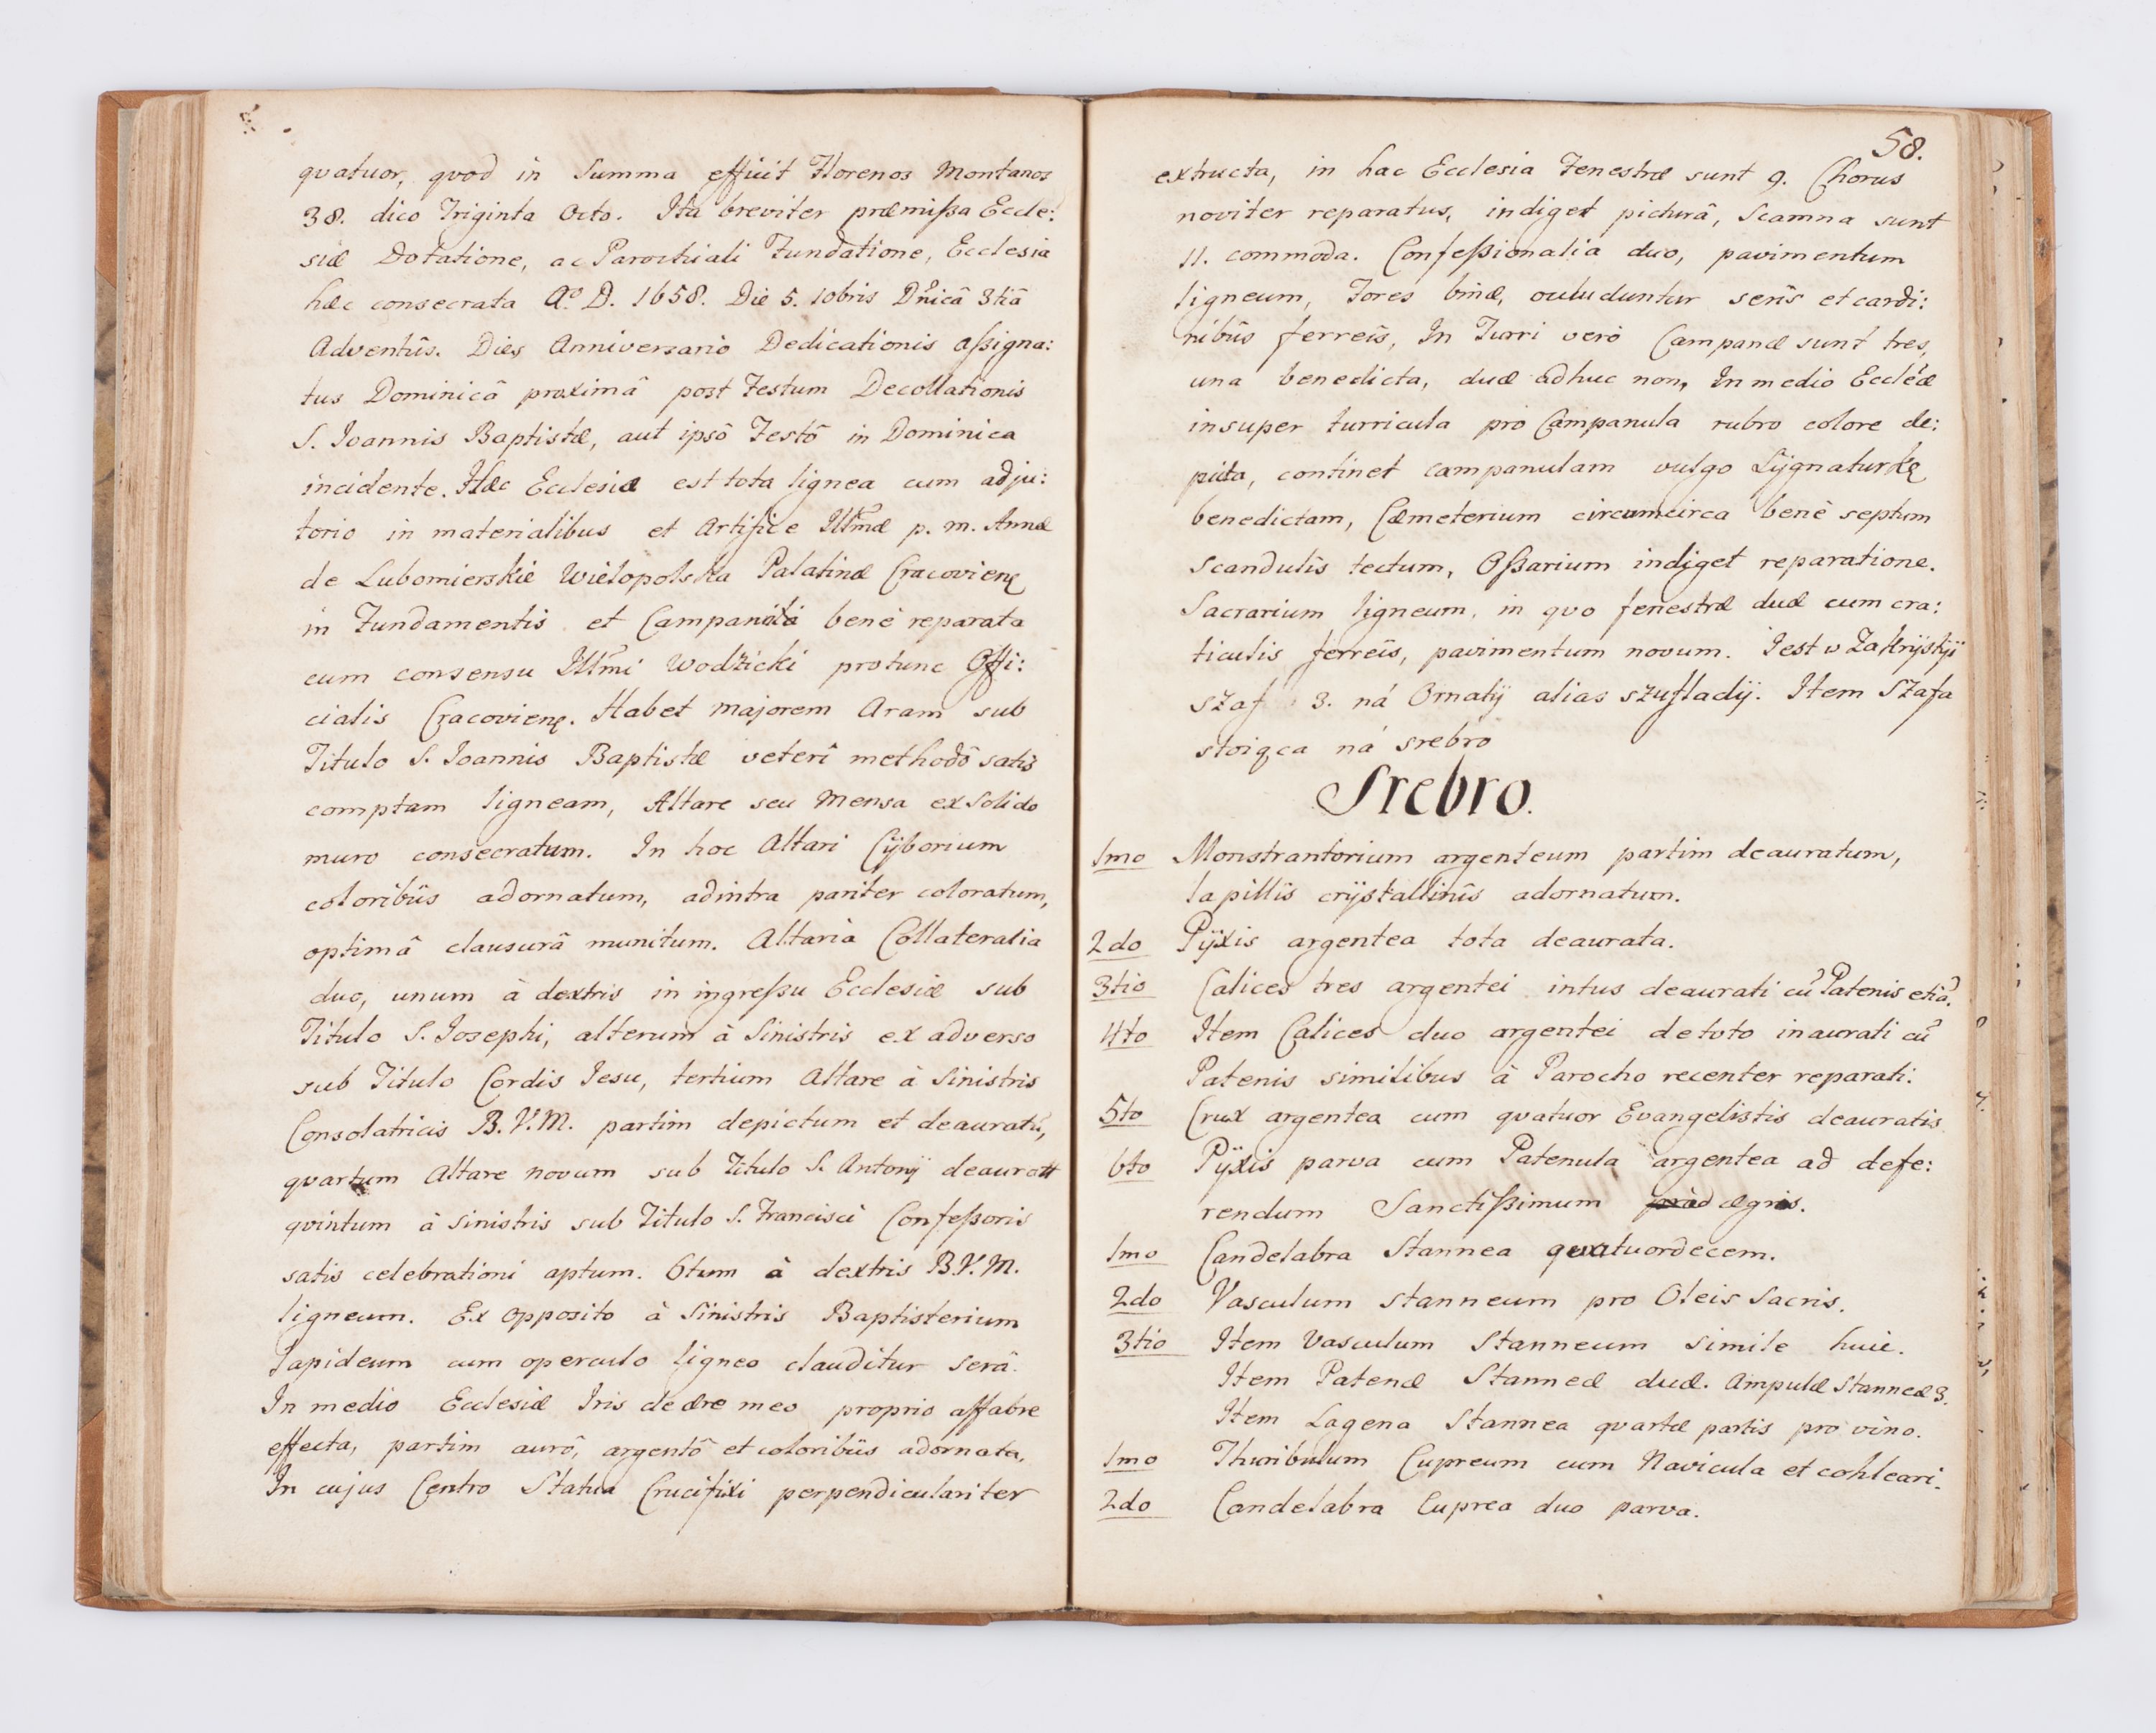 quatuor, quod in Summa efficit Florenos Montanos
38. dico Triginta Octo. Ita breviter præmißa Eccle:
siæ Dotatione, ac Parochiali Fundatione, Ecclesia
hæc consecrata Aº. D. 1658. Die 5. 10bris Dnicâ 3tiâ
Adventûs. Dies Anniversario Dedicationis aßigna:
tus Dominicâ proximâ post Festum Decollationis
S. Ioannis Baptistæ, aut ipsô Festô in Dominica
incidente. Hæc Ecclesia est tota lignea cum adju:
torio in materialibus et Artifice Illmæ p. m. Annæ
de Lubomierskie Wielopolska Palatinæ Cracovienę
in Fundamentis et Campanili benè reparata
cum consensu Illmi Wodzicki protunc Offi:
cialis Cracovienę. Habet majorem Aram sub
Titulo S. Ioannis Baptistæ veteri methodô satis
comptam ligneam, Altare seu Mensa ex Solido
muro consecratum. In hoc Altari Cÿborium
coloribûs adornatum, adintra pariter coloratum,
optimâ clausurâ munitum. Altaria Collateralia
duo, unum à dextris in ingreßu Ecclesiæ sub
Titulo S. Iosephi, alterum à Sinistris ex adverso
sub Titulo Cordis Iesu, tertium Altare à Sinistris
Consolatricis B.V.M. partim depictum et deauratū,
quartum Altare novum sub Titulo S. Antonÿ deauratū
quintum à sinistris sub Titulo S. Francisci Confeßoris
satis celebrationi aptum. 6tum à dextris B.V.M.
ligneum. Ex opposito à Sinistris Baptisterium
lapideum cum operculo ligneo clauditur serâ.
In medio Ecclesiæ Iris de ære meo proprio affabre
effecta, partim aurô, argentô et coloribûs adornata,
In cujus Centro Statua Crucifixi perpendiculariter
58.
extructa, in hac Ecclesia Fenestræ sunt 9. Chorus
noviter reparatus, indiget picturâ, Scamna sunt
11. commoda. Confeßionalia duo, pavimentum
ligneum, Fores binæ, ocluduntur serîs et cardi:
nibûs ferreîs, In Turri verò Campanæ sunt tres,
una benedicta, duæ adhuc non, In medio Eccleæ
insuper turricula pro Campanula rubro colore de:
picta, continet campanulam vulgo Sÿgnaturkę
benedictam, Cæmeterium circumcirca benè septum
Scandulîs tectum, Oßarium indiget reparatione.
Sacrarium ligneum, in quo fenestræ duæ cum cra:
ticulis ferreîs, pavimentum novum. Jest w Zakrÿstÿi
szaf 3. ná Ornatÿ alias szufladÿ. Item Szafa
stoiąca ná srebro
Srebro.
1mo Monstrantorium argenteum partim deauratum,
lapillîs crÿstallinîs adornatum.
2do Pÿxis argentea tota deaurata.
3tio Calices tres argentei intus deaurati cū Patenis etiā.
4to Item Calices duo argentei detoto inaurati cū
Patenis similibus à Parocho recenter reparati.
5to Crux argentea cum quatuor Evangelistis deauratis
6to Pÿxis parva cum Patenula argentea ad defe:
rendum Sanctißimum ad ægris.
1mo Candelabra Stannea quatuordecem.
2do Vasculum stanneum pro Oleis Sacris.
3tio Item Vasculum Stanneum simile huic.
Item Patenæ Stanneæ duæ. Ampulæ Stanneæ 3.
Item Lagena Stannea quartæ partis pro vino.
1mo Thuribulum Cupreum cum Navicula et cohleari.
2do Candelabra Cuprea duo parva.